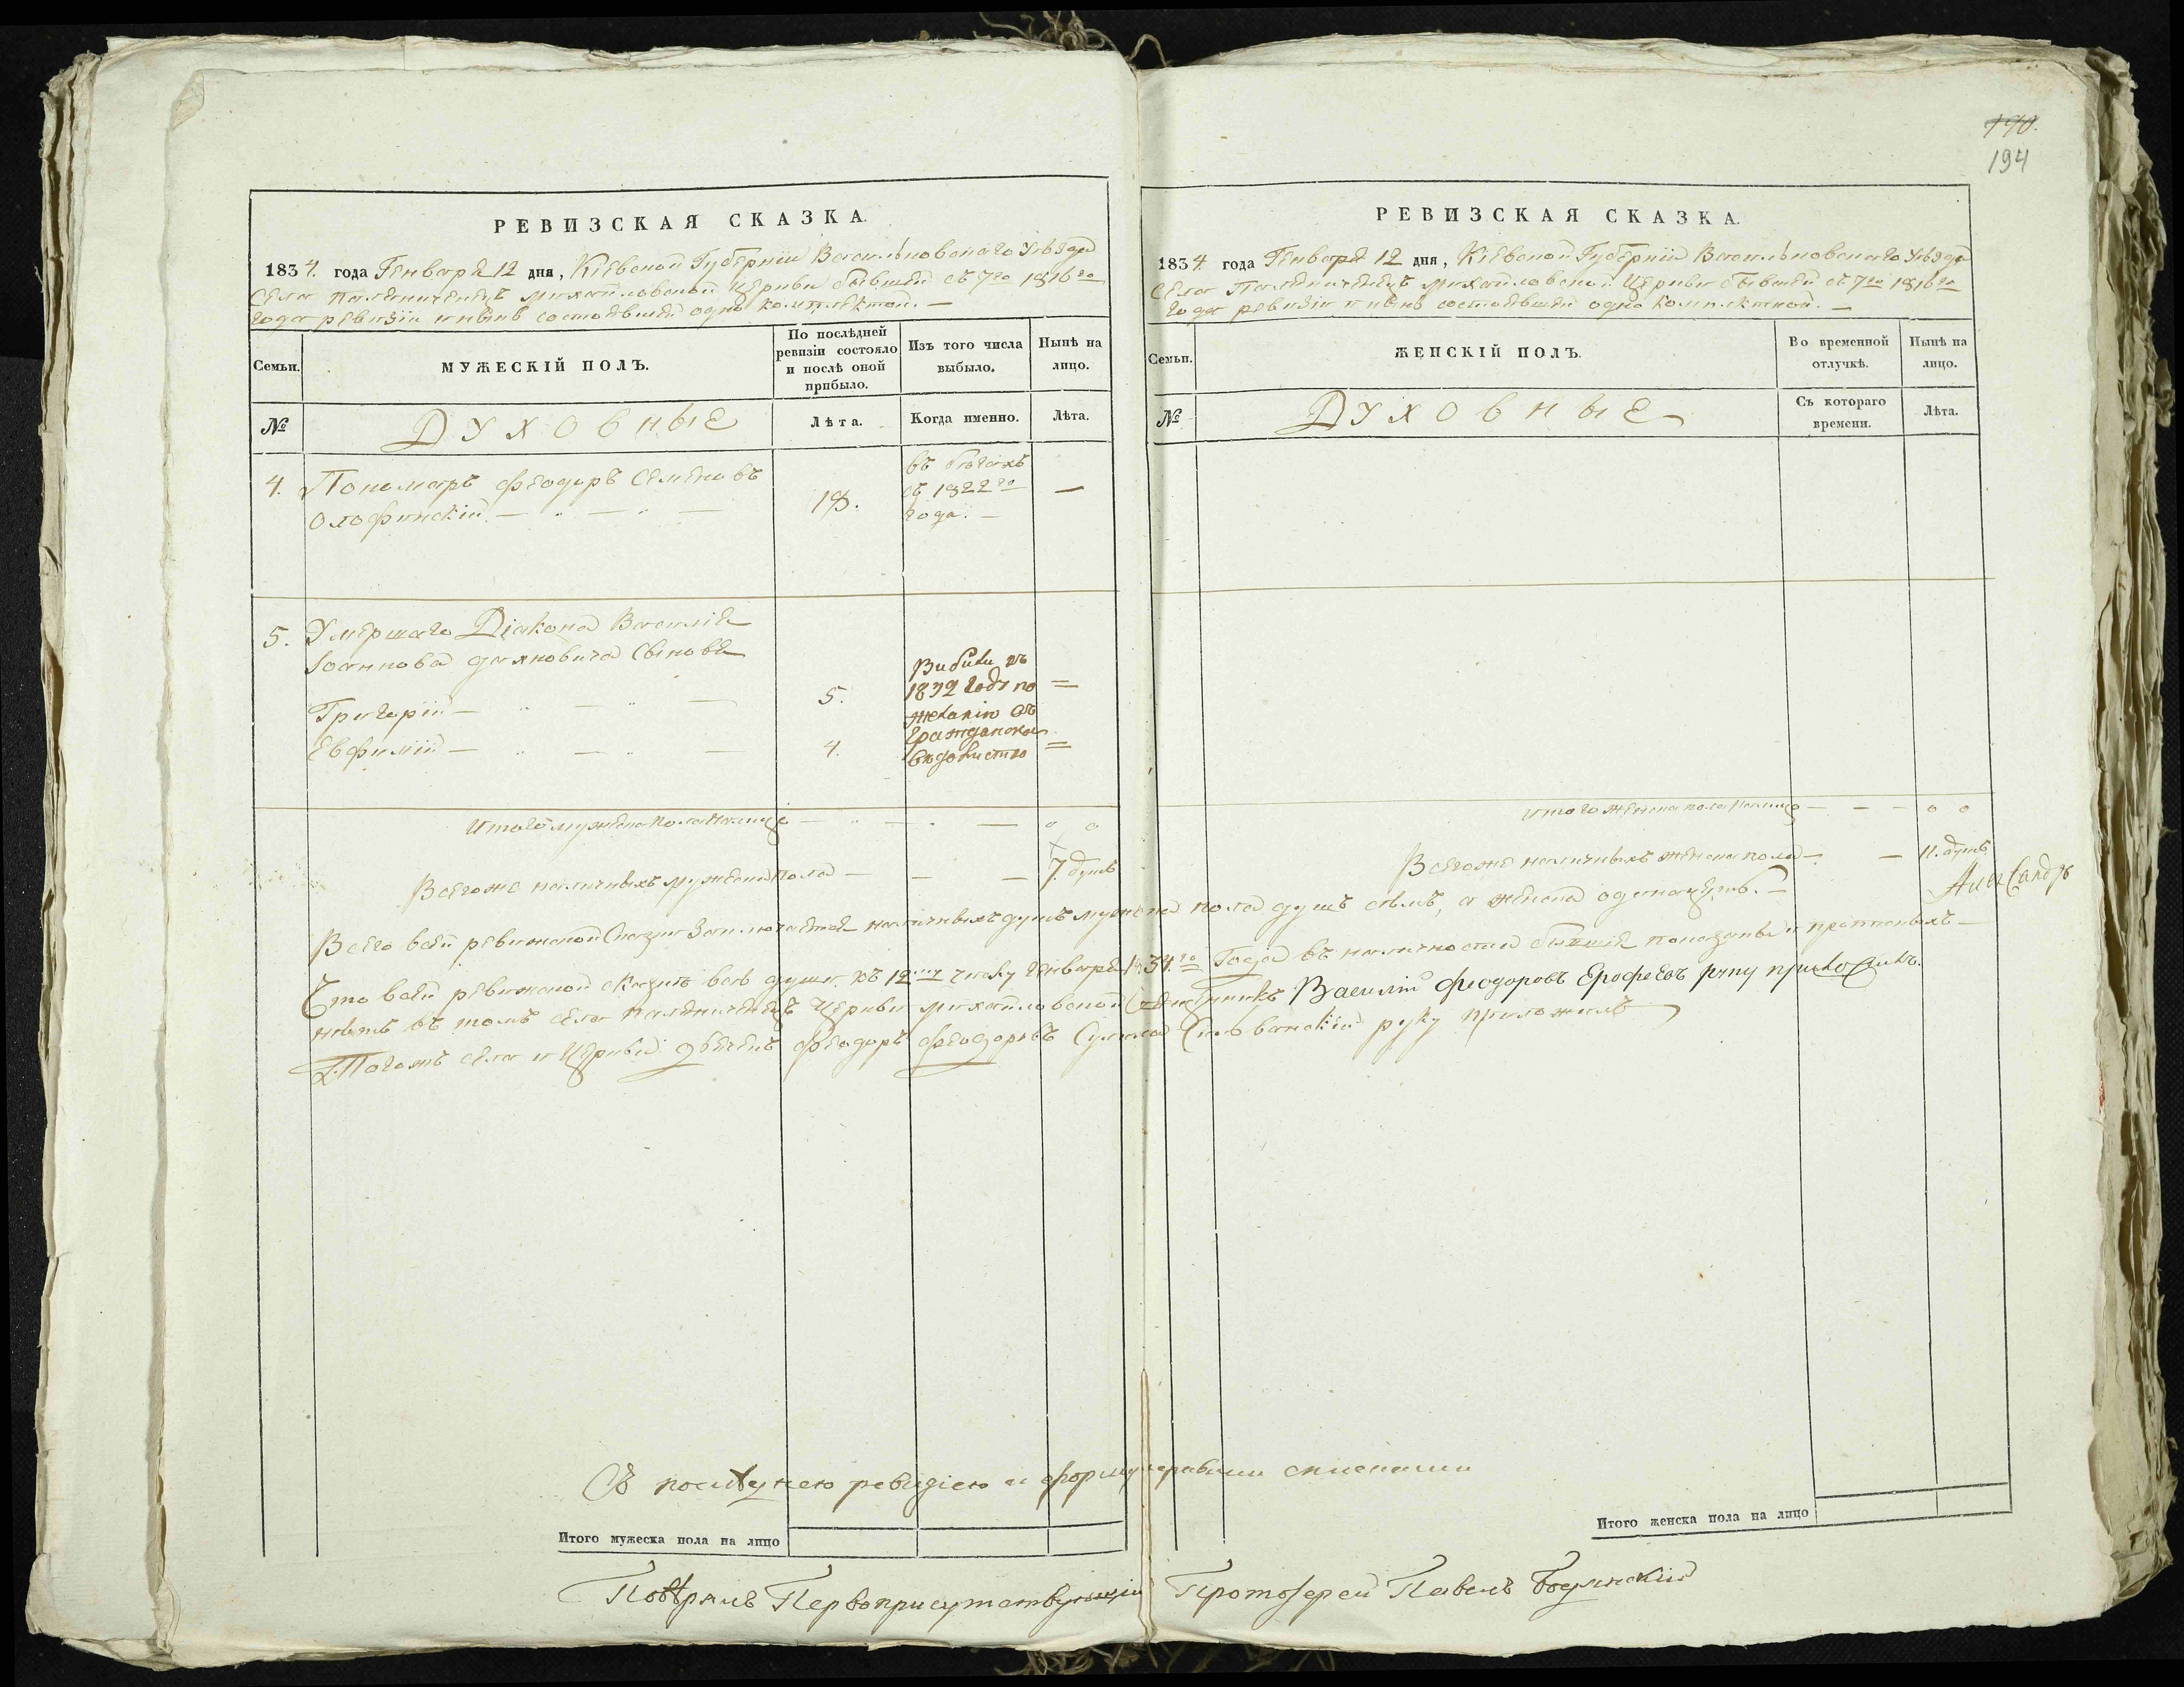 190.
194
РЕВИЗСКАЯ СКАЗКА.
1834. года Генваря 12 дня, Кіевской Губерніи Васильковскаго Уѣзда
Села Паляниченецъ Михайловской Церкви бывшей съ 7го 1816го
года ревизіи и нынѣ состоявшей однокомплектной. —
Семьи.
МУЖЕСКІЙ ПОЛЪ.
По послѣдней ревизіи состояло и послѣ оной прибыло.
Изъ того числа выбыло.
Нынѣ на лицо.
№
Духовные
Лѣта.
Когда именно.
Лѣта.
4. Пономарь Феодоръ Семеновъ
Олофинскій — 18. въ бѣгахъ съ 1822го года. — —
5. Умершаго Діакона Василія
Іоаннова Дахновича Сынове
Григорій — 5. =
Евфимій — 4. =
Вибили въ
1832 году по
желанію въ
Гражданское
вѣдомство
Итого мужеска пола на лицо — — — 0 0
Всего же наличныхъ мужеска пола — — — 7. душъ
РЕВИЗСКАЯ СКАЗКА.
1834. года Генваря 12 дня, Кіевской Губерніи Васильковскаго Уѣзда
Села Паляниченецъ Михайловской Церкви бывшей съ 7го 1816го
года ревизіи и нынѣ состоявшей однокомплектной. —
Семьи.
ЖЕНСКІЙ ПОЛЪ.
Во временной отлучкѣ.
Нынѣ на лицо.
№
Духовные
Съ котораго времени.
Лѣта.
Итого женска пола на лицо — — — 0 0
Всего же наличныхъ женска пола — — 11. душъ
Всего въ сей ревижской Сказки заключается наличныхъ душъ мужеска пола душъ семь, а женска одинадцять. —
Что въ сей ревижской сказкѣ всѣ души къ 12му числу Генваря 1834го Года въ наличности бывшія показаны и прописныхъ —
нѣтъ въ томъ села Паляниченецъ Церкви Михайловской Священникъ Василій Феодоровъ Ерофеевъ руку приложилъ.
Тогожъ села и Церкви Феодоръ Феодоровъ руку приложилъ
Съ послѣднею ревизіею и формулярными списками
Итого мужеска пола на лицо
Итого женска пола на лицо
Повѣрялъ Первоприсутствующій Протоіерей Павелъ